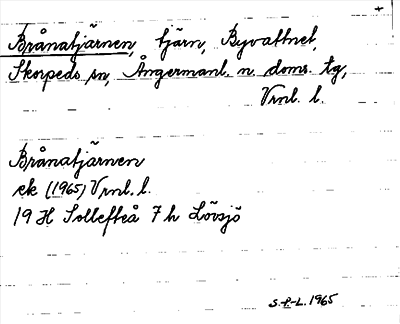 Brånatjärnen, tjärn, Byvattnet,
Skorpeds sn, Ångermanl. n. doms. tg,
Vrnl. l.
Brånatjärnen
ek (1965) Vrnl. l.
19 H Sollefteå 7 h Lövsjö
S.f-L. 1965